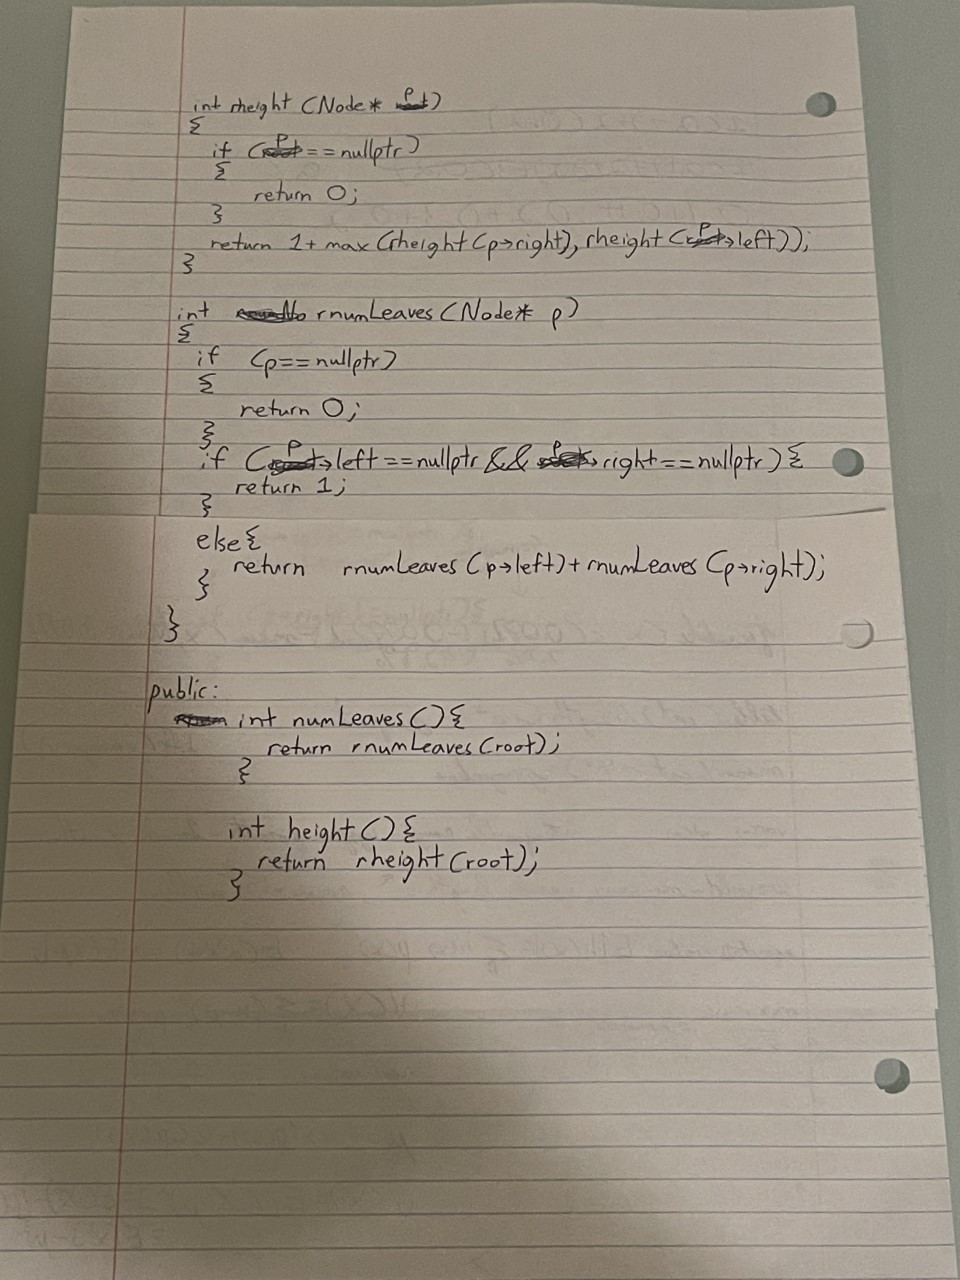 int rheight (Node* p)
{
if (p == nullptr)
{
return 0;
}
return 1 + max (rheight (p->right), rheight (p->left));
}
int rnumLeaves (Node* p)
{
if (p == nullptr)
{
return 0;
}
if (p->left == nullptr && p->right == nullptr) {
return 1;
}
else {
return rnumLeaves (p->left) + rnumLeaves (p->right);
}
}
public:
int numLeaves () {
return rnumLeaves (root);
}
int height () {
return rheight (root);
}